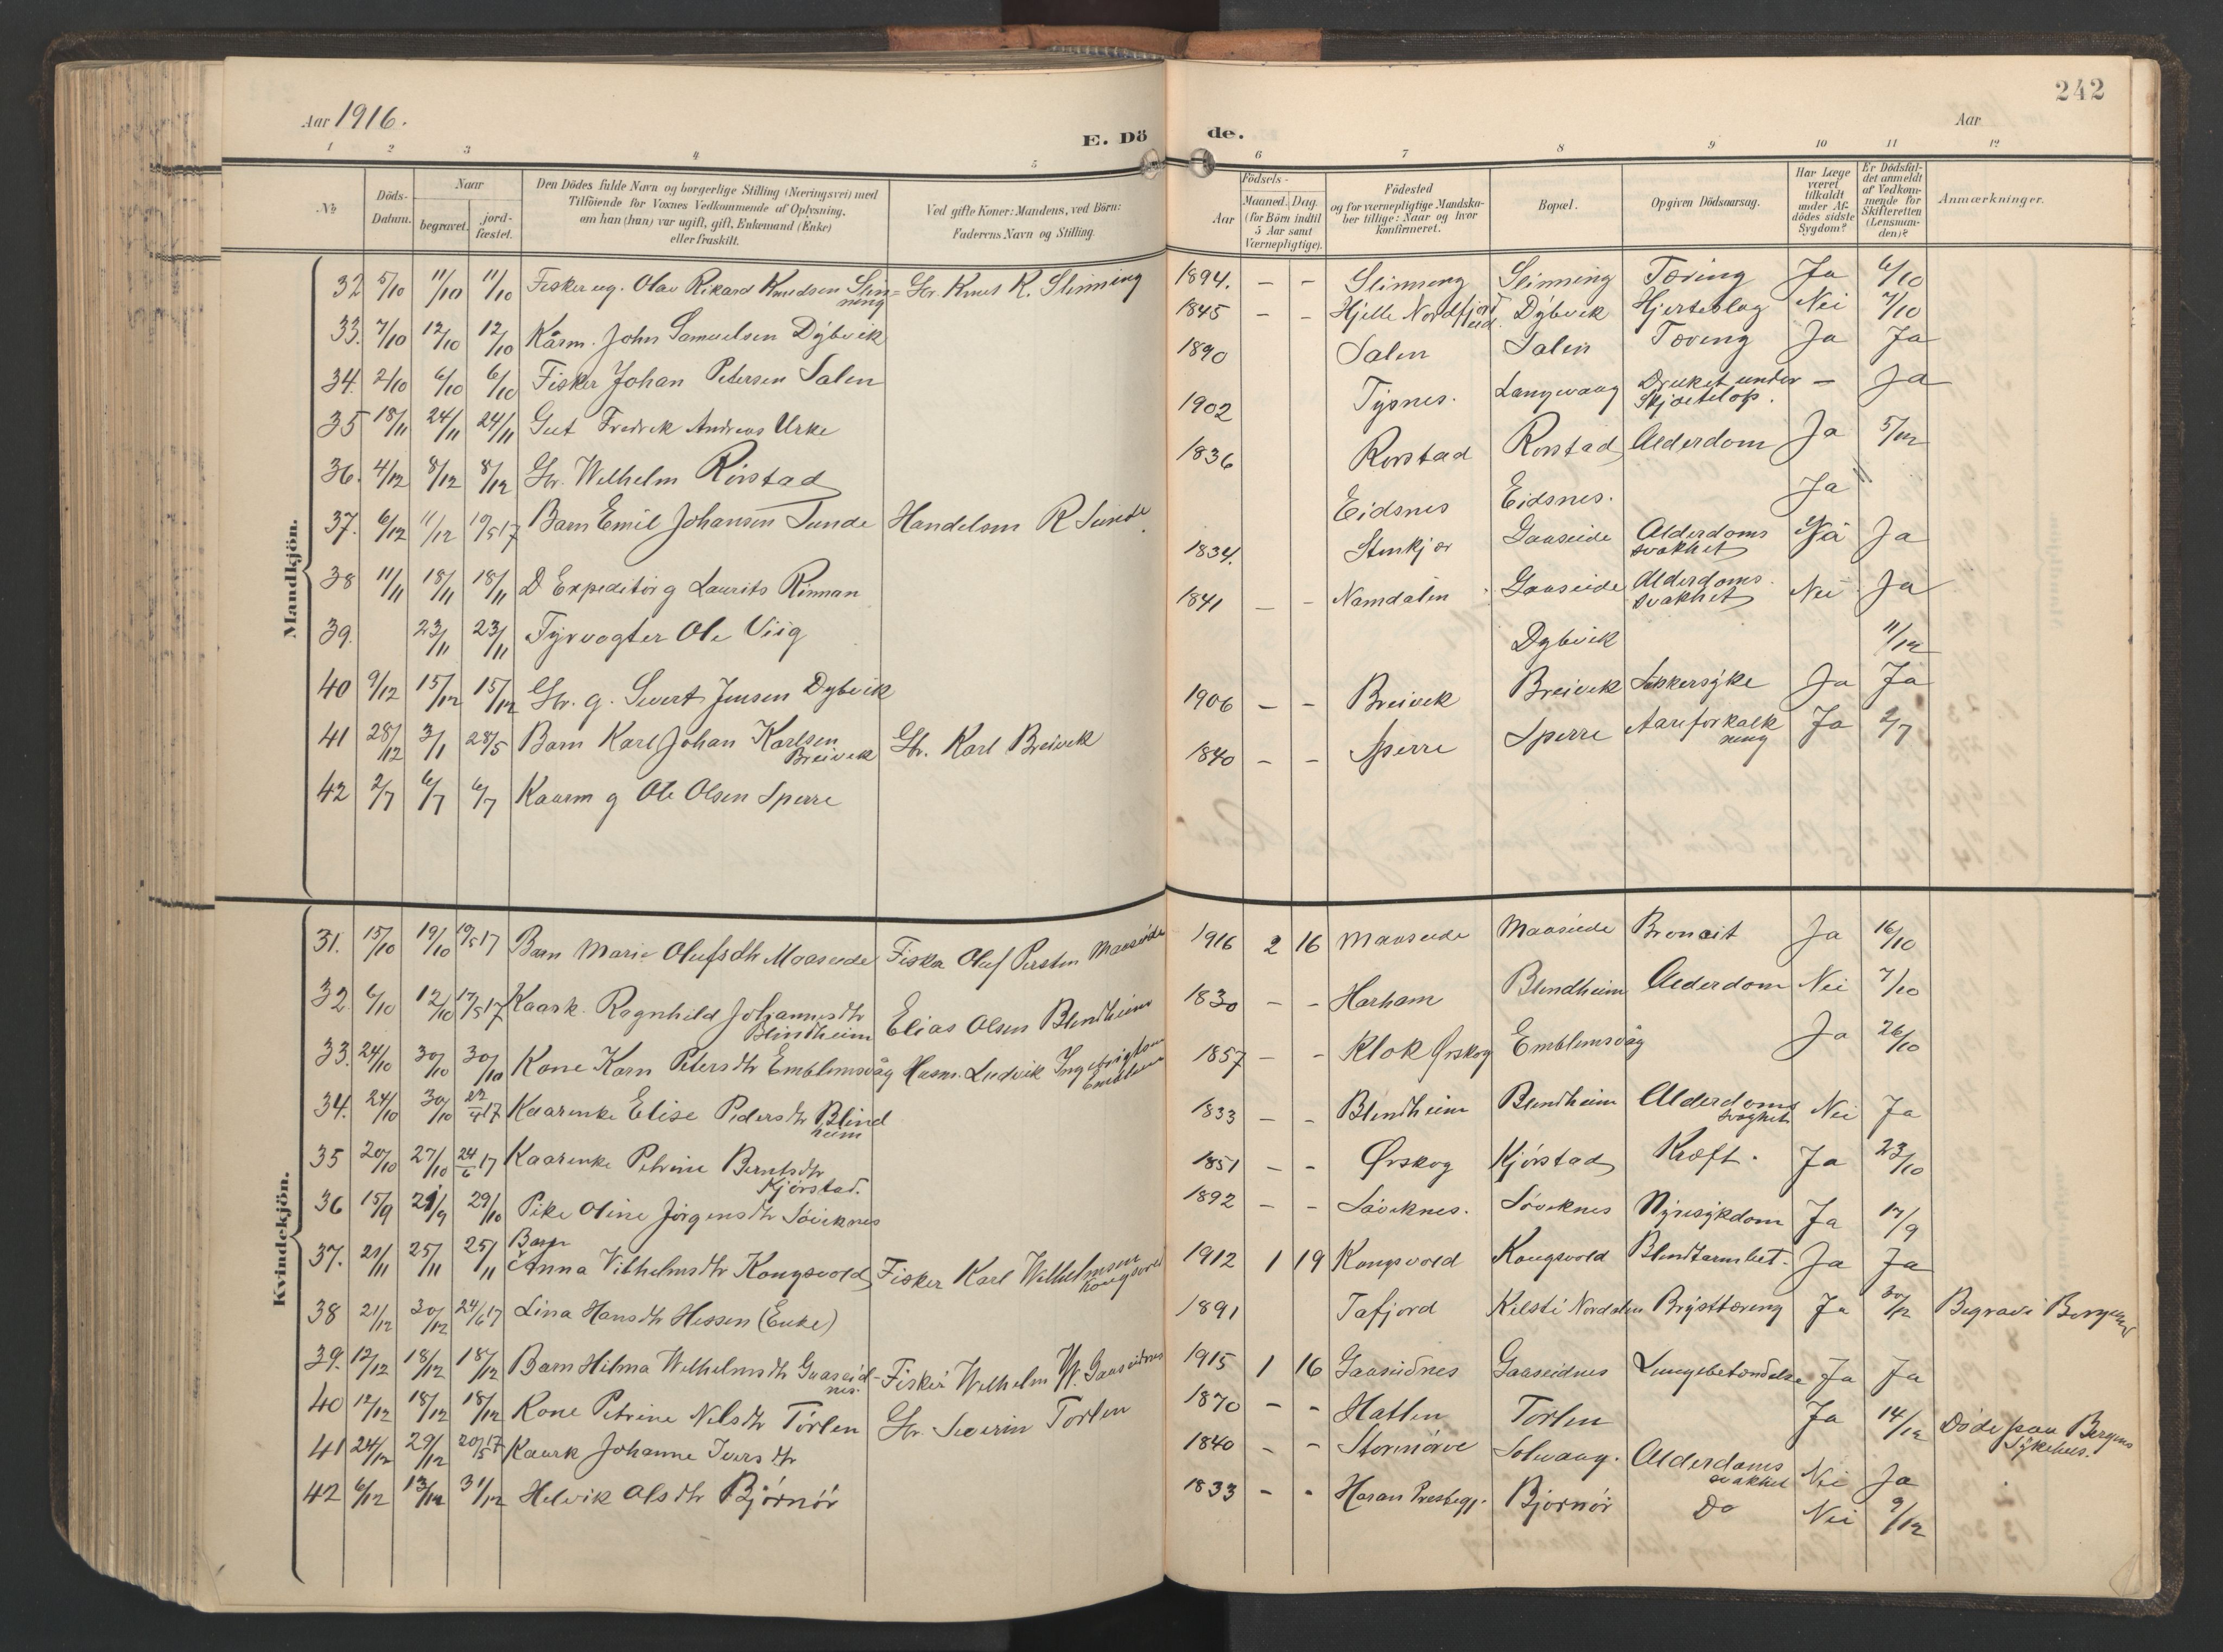 242
Aar 1916.
Aar
E. Dö de.
1 2 3 4 5 6 7 8 9 10 11 12
№
Döds-Datum.
Naar
begravet.
jord-fæstet.
Den Dödes fulde Navn og borgerlige Stilling (Næringsvei) med
Tilföiende for Voxnes Vedkommende af Oplysning,
om han (hun) var ugift, gift, Enkemand (Enke)
eller fraskilt.
Ved gifte Koner: Mandens, ved Börn:
Faderens Navn og Stilling.
Födsels-
Aar
Maaned. Dag.
(for Börn indtil
5 Aar samt
Værnepligtige).
Födested
og for værnepligtige Mandska-
ber tillige: Naar og hvor
konfirmeret.
Bopæl.
Opgiven Dödsaarsag.
Har Læge
været
tilkaldt
under Af-
dödes sidste
Sygdom?
Er Dödsfal-
det anmeldt
af Vedkom-
mende for
Skifteretten
(Lensman-
den)?
Anmærkninger.
Mandkjön.
32 5/10 11/10 11/10 Fisker ug. Olav Rikard Knudsen Slin-ning Gr. Knut R. Slinning 1894. – – Slinning Slinning Tæring Ja 6/10
33. 7/10 12/10 12/10 Kårm. John Samuelsen Dybvik 1845 – – Hjelle Nordfjord eid. Dybvik Hjerteslag Nei 7/10
34. 2/10 6/10 6/10 Fisker Johan Petersen Salen 1890 Salen Salen Tæring Ja Ja
35 18/11 24/11 24/11 Gut Fredrek Andreas Urke 1902 Tysnes. Langevaag Druknet under Skjøtelop. – Ja
36. 4/12 8/12 8/12 Gr. Wilhelm Rörstad 1836 Rorstad Rorstad Alderdom Ja 5/12
37. 6/12 11/12 19/5 17 Barn Emil Johansen Sunde Handelsm R Sunde. Eidsnes Eidsnes. Ja
38 11/11 18/11 18/11 D Expeditör g Laurits Rinnan 1834. Stenkjær Gaaseide Alderdoms svakhet Ja Ja
39. 23/11 23/11 Fyrvogter Ole Viig 1841 – – Namdalen Gaaseide Alderdoms svakhet Nei Ja
40 9/12 15/12 15/12 Gr. g. Sivert Jensen Dybvik Dybvik 11/12
41 28/12 3/1 28/5 Barn Karl Johan Karlsen Breivik Gr. Karl Breivik 1906 – – Breivik Breivik Sukkersyke Ja Ja
42 2/7 6/7 6/7 Kaarm g Ole Olsen Sperre 1840 – – Sperre Sperre Aareforkalkning Ja 2/7
Kvindekjön.
31. 15/10 19/10 19/5 17 Barn Marie Olufsdtr Maaseide Fisker Oluf Persten Maaseide 1916 2 16 Maaseide Maaseide Broncit Ja 16/10
32 6/10 12/10 17/5 17 Kaark. Ragnhild Johannesdtr Blindheim Elias Olsen Blindheim 1830 – – Harham Blindheim Alderdom Nei 7/10
33. 24/10 30/10 30/10 Kone Karn Petersdtr Emblemsvåg Husm. Ludvik Ingebrigtsen Emblem 1857 – – Klok Ørskog Emblemsvåg Ja 26/10
34. 24/10 30/10 22/4 17 Kaarenke Elise Pedersdtr Blindheim 1833 – – Blindheim Blindheim Alderdoms svaghet Nei Ja
35 20/10 27/10 24/6 17 Kaarenke Petrine Berntsdtr Kjörstad. 1851 – – Ørskog Kjörstad Kræft. Ja 23/10
36 15/9 21/9 29/10 Pike Oline Jörgensdtr Söviknes 1892 – – Söveknes. Söveknes Nyresykdom Ja 17/9
37. 21/11 25/11 25/11 Barn Anna Vilhelmsdtr Kongsvold Fisker Karl Wilhelmsen Kongsvold 1912 1 19 Kongsvold Kongsvold Blindtarmbet. Ja Ja
38 21/12 30/12 24/6 17 Lina Hansdtr Hessen (Enke) 1891 Tafjord Kilsti Nordalen Brysttæring Ja 30/12 Begravd Borgund
39. 12/12 18/12 18/12 Barn Hilma Wilhelmsdtr Gaaseidnes. Fisker Wilhelm W. Gaaseidnes 1915 1 16 Gaaseidnes Gaaseidnes Lungebetændelse Ja Ja
40 12/12 18/12 18/12 Kone Petrine Nilsdtr Törlen Gr. Severin Torlen 1870 – – Hatlen Torlen Ja 14/12 Döde paa Bergens Sykehus.
41 24/12 29/12 20/5 17 Kaark Johanne Iversdtr 1840 – – Stormörve Solvaag. Alderdoms svakhet Nei Ja
42 6/12 13/12 31/12 Helvik Olsdtr Björnör 1833 – – Haran Prestegj. Bjornör Do Nei 9/12